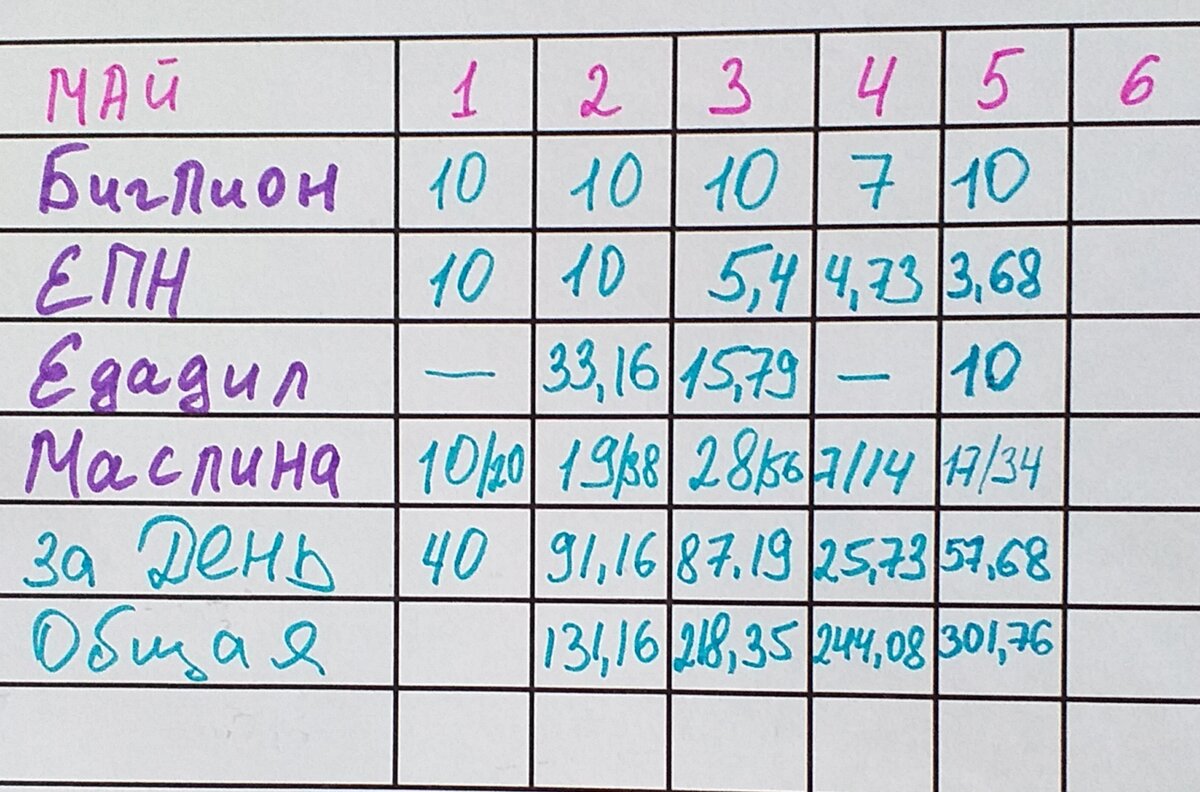 МАЙ 1 2 3 4 5 6
Биглион 10 10 10 7 10
ЕПН 10 10 5,4 4,73 3,68
Едадил — 33,16 15,79 — 10
Маслина 10/20 19/38 28/56 7/14 17/34
за День 40 91,16 87.19 25,73 57,68
Общая 131,16 218,35 244,08 301,76